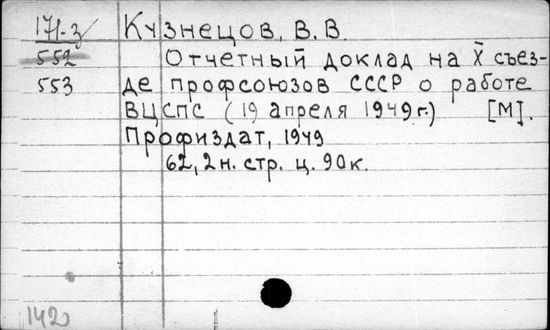 171-з Кузнецов, В. В.
552 Отчетный доклад на X съез-
553 де профсоюзов СССР о работе
ВЦСПС (19 апреля 1949 г.) [М].
Профиздат, 1949
62, 2 н. стр. ц. 90 к.
1420